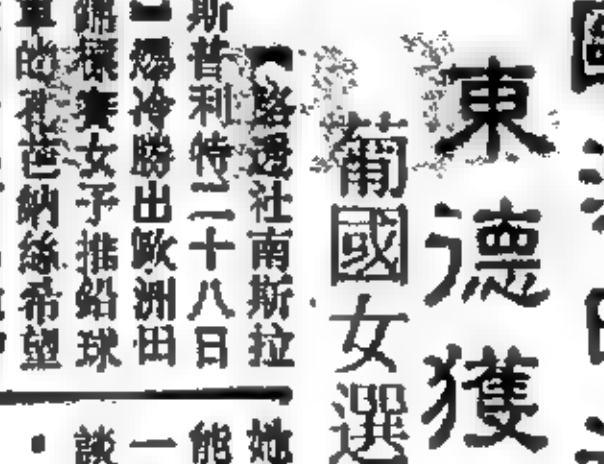 東德獲
葡國女選
【路透社南斯拉
斯普利特二十八日
】冷勝出歐洲田
錦標賽女子推鉛球
軍的芭納絲希望
她
能
一
談